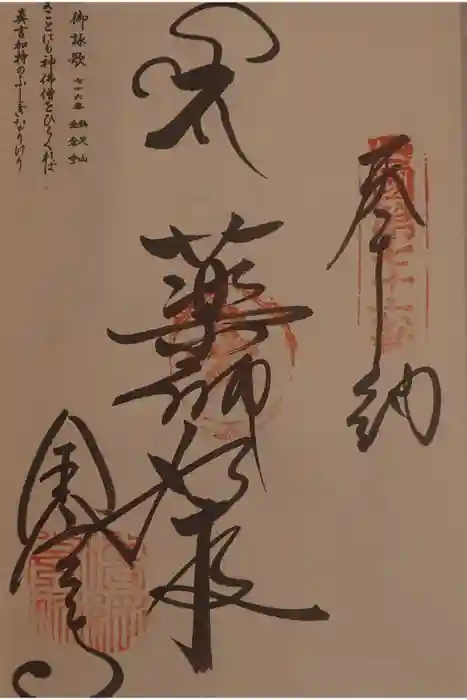 奉納
第七十六番
藥師如来
金倉寺
御詠歌 七十六番 鶏足山 金倉寺
まことにも神佛僧をひらくれば
真言加持のふしぎなりけり